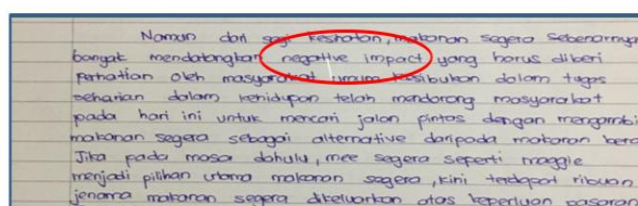 Namun dari segi kesihatan, makanan segera sebenarnya
banyak mendatangkan negative impact yang harus diberi
perhatian oleh masyarakat umum kesibukan dalam tugas
seharian dalam kehidupan telah mendorong masyarakat
pada hari ini untuk mencari jalan pintas dengan mengambi
makanan segera sebagai alternative daripada makanan bera
Jika pada masa dahulu, mee segera seperti maggie
menjadi pilihan utama makanan segera, kini terdapat ribuan
jenama makanan segera dikeluarkan atas keperluan pasaran